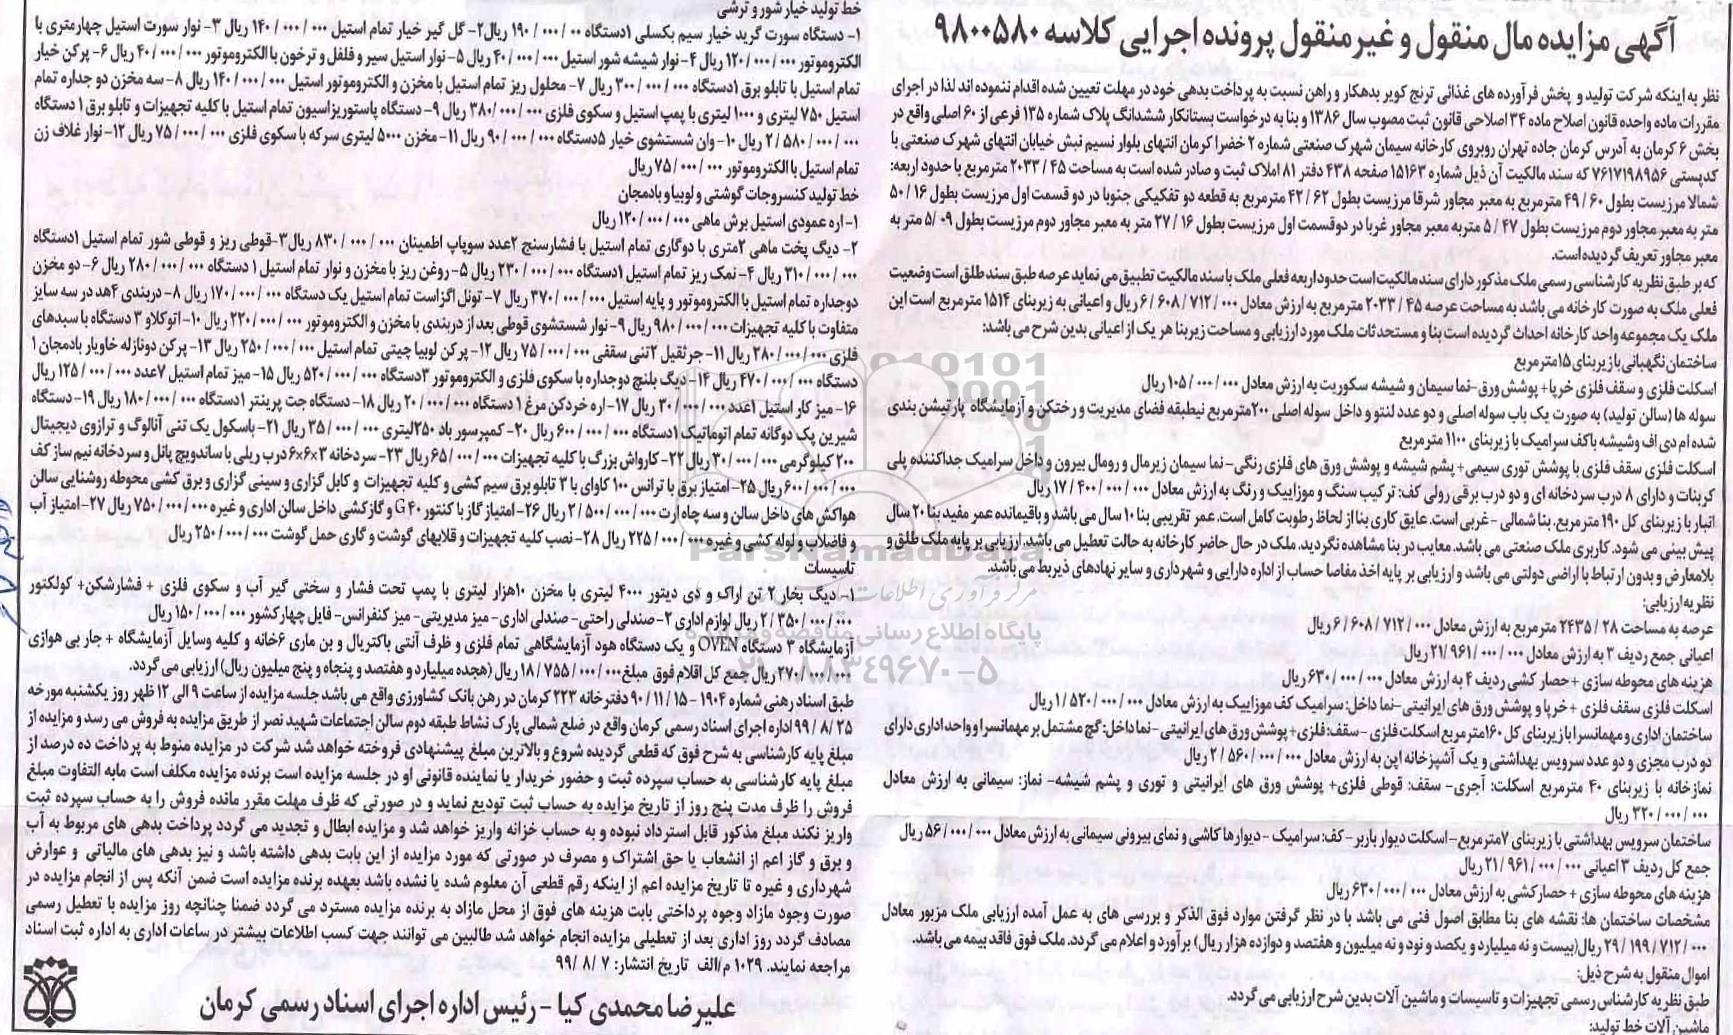 آگهی مزایده مال منقول و غیر منقول پرونده اجرایی کلاسه ۹۸۰۰۵۸۰
نظر به اینکه شرکت تولید و پخش فرآورده های غذائی ترنج کویر بدهکار و راهن نسبت به پرداخت بدهی خود در مهلت تعیین شده اقدام ننموده اند لذا در اجرای
مقررات ماده واحده قانون اصلاح ماده ۳۴ اصلاحی قانون ثبت مصوب سال ۱۳۸۶ و بنا به درخواست بستانکار ششدانگ پلاک شماره ۱۳۵ فرعی از ۶۰ اصلی واقع در
بخش ۶ کرمان به آدرس کرمان جاده تهران روبروی کارخانه سیمان شهرک صنعتی شماره ۲ خضرا کرمان انتهای بلوار نسیم نبش خیابان انتهای شهرک صنعتی با
کدپستی ۷۶۱۷۱۹۸۹۵۶ که سند مالکیت آن ذیل شماره ۱۵۱۶۳ صفحه ۴۳۸ دفتر ۸۱ املاک ثبت و صادر شده است به مساحت ۴۵ / ۲۰۳۳ مترمربع با حدود اربعه:
شمالا مرزیست بطول ۶۰ / ۴۹ مترمربع به معبر مجاور شرقا مرزیست بطول ۶۲ / ۴۲ مترمربع به قطعه دو تفکیکی جنوبا در دو قسمت اول مرزیست بطول ۱۶ / ۵۰
متر به معبر مجاور دوم مرزیست بطول ۴۷ / ۵ متر به معبر مجاور غربا در دو قسمت اول مرزیست بطول ۱۶ / ۲۷ متر به معبر مجاور دوم مرزیست بطول ۰۹ /۵ متر به
معبر مجاور تعریف گردیده است.
که بر طبق نظریه کارشناسی رسمی ملک مذکور دارای سند مالکیت است حدود اربعه فعلی ملک با سند مالکیت تطبیق می نماید عرصه طبق سند طلق است وضعیت
فعلی ملک به صورت کارخانه می باشد به مساحت عرصه ۴۵ / ۲۰۳۳ مترمربع به ارزش معادل ۰۰۰ / ۷۱۲ / ۶۰۸ / ۶ ریال و اعیانی به زیربنای ۱۵۱۴ مترمربع است این
ملک یک مجموعه واحد کارخانه احداث گردیده است بنا و مستحدثات ملک مورد ارزیابی و مساحت زیربنا هر یک از اعیانی بدین شرح می باشد:
ساختمان نگهبانی با زیربنای ۱۵مترمربع
اسکلت فلزی و سقف فلزی خرپا+ پوشش ورق-نما سیمان و شیشه سکوریت به ارزش معادل ۰۰۰ / ۰۰۰ / ۱۰۵ ریال
سوله ها (سالن تولید) به صورت یک باب سوله اصلی و دو عدد لنتو و داخل سوله اصلی ۲۰۰مترمربع نیطبقه فضای مدیریت و رختکن و آزمایشگاه پارتیشن بندی
شده ام دی اف وشیشه باکف سرامیک با زیربنای ۱۱۰۰ مترمربع
اسکلت فلزی سقف فلزی با پوشش توری سیمی+ پشم شیشه و پوشش ورق های فلزی رنگی- نما سیمان زیرمال و رومال بیرون و داخل سرامیک جداکننده پلی
کربنات و دارای ۸ درب سردخانه ای و دو درب برقی رولی کف: ترکیب سنگ و موزاییک و رنگ به ارزش معادل ۰۰۰ / ۰۰۰ / ۴۰۰ / ۱۷ ریال
انبار با زیربنای کل ۱۹۰ مترمربع. بنا شمالی - غربی است. عایق کاری بنا از لحاظ رطوبت کامل است. عمر تقریبی بنا ۱۰ سال می باشد و باقیمانده عمر مفید بنا ۲۰ سال
پیش بینی می شود. کاربری ملک صنعتی می باشد. معایب در بنا مشاهده نگردید. ملک در حال حاضر کارخانه به حالت تعطیل می باشد. ارزیابی بر پایه ملک طلق و
بلامعارض و بدون ارتباط با اراضی دولتی می باشد و ارزیابی بر پایه اخذ مفاصا حساب از اداره دارایی و شهرداری و سایر نهادهای ذیربط می باشد.
نظریه ارزیابی:
عرصه به مساحت ۲۸ / ۲۴۳۵ مترمربع به ارزش معادل ۰۰۰ / ۷۱۲ / ۶۰۸ / ۶ ریال
اعیانی جمع ردیف ۳ به ارزش معادل ۰۰۰ / ۰۰۰ / ۹۶۱ /۲۱ ریال
هزینه های محوطه سازی + حصار کشی ردیف ۴ به ارزش معادل ۰۰۰ / ۰۰۰ / ۶۳۰ ریال
اسکلت فلزی سقف فلزی + خرپا و پوشش ورق های ایرانیتی-نما داخل: سرامیک کف موزاییک به ارزش معادل ۰۰۰ / ۰۰۰ / ۵۲۰ / ۱ ریال
ساختمان اداری و مهمانسرا با زیربنای کل ۱۶۰مترمربع اسکلت فلزی - سقف: فلزی+ پوشش ورق های ایرانیتی - نما داخل: گچ مشتمل بر مهمانسرا و واحد اداری دارای
دو درب مجزی و دو عدد سرویس بهداشتی و یک آشپزخانه اپن به ارزش معادل ۰۰۰ / ۰۰۰ / ۵۶۰ / ۲ ریال
نمازخانه با زیربنای ۴۰ مترمربع اسکلت: آجری- سقف: قوطی فلزی+ پوشش ورق های ایرانیتی و توری و پشم شیشه- نماز: سیمانی به ارزش معادل
۰۰۰ / ۰۰۰ / ۳۲۰ ریال
ساختمان سرویس بهداشتی با زیربنای ۷مترمربع-اسکلت دیوار باربر- کف: سرامیک - دیوارها کاشی و نمای بیرونی سیمانی به ارزش معادل ۰۰۰ / ۰۰۰ / ۵۶ ریال
جمع کل ردیف ۳ اعیانی ۰۰۰ / ۰۰۰ / ۹۶۱ / ۲۱ ریال
هزینه های محوطه سازی + حصارکشی به ارزش معادل ۰۰۰ / ۰۰۰ / ۶۳۰ ریال
مشخصات ساختمان ها: نقشه های بنا مطابق اصول فنی می باشد با در نظر گرفتن موارد فوق الذکر و بررسی های به عمل آمده ارزیابی ملک مزبور معادل
۰۰۰ / ۷۱۲ / ۱۹۹ / ۲۹ ریال(بیست و نه میلیارد و یکصد و نود و نه میلیون و هفتصد و دوازده هزار ریال) برآورد و اعلام می گردد. ملک فوق فاقد بیمه می باشد.
اموال منقول به شرح ذیل:
طبق نظریه کارشناس رسمی تجهیزات و تاسیسات و ماشین آلات بدین شرح ارزیابی می گردد.
ماشین آلات خط تولید:
خط تولید خیار شور و ترشی
۱- دستگاه سورت گرید خیار سیم بکسلی ۱دستگاه ۰۰ / ۰۰۰ / ۱۹۰ ریال۲- گل گیر خیار تمام استیل ۰۰۰ / ۰۰۰ / ۱۴۰ ریال ۳- نوار سورت استیل چهارمتری با
الکتروموتور ۰۰۰ / ۰۰۰ /۱۲۰ ریال ۴- نوار شیشه شور استیل ۰۰۰ / ۰۰۰ / ۴۰ ریال ۵- نوار استیل سیر و فلفل و ترخون با الکتروموتور ۰۰۰ / ۰۰۰ / ۴۰ ریال ۶- پرکن خیار
تمام استیل با تابلو برق ۱دستگاه ۰۰۰ / ۰۰۰ / ۳۰۰ ریال ۷- محلول ریز تمام استیل با مخزن و الکتروموتور استیل ۰۰۰ / ۰۰۰ / ۱۴۰ ریال ۸- سه مخزن دو جداره تمام
استیل ۷۵۰ لیتری و ۱۰۰۰ لیتری با پمپ استیل و سکوی فلزی ۰۰۰ / ۰۰۰ / ۳۸۰ ریال ۹- دستگاه پاستوریزاسیون تمام استیل با کلیه تجهیزات و تابلو برق ۱ دستگاه
۰۰۰ / ۰۰۰ / ۵۸۰ / ۲ ریال ۱۰- وان شستشوی خیار ۵دستگاه ۰۰۰ / ۰۰۰ / ۹۰ ریال ۱۱- مخزن ۵۰۰۰ لیتری سرکه با سکوی فلزی ۰۰۰ / ۰۰۰ / ۷۵ ریال ۱۲- نوار غلاف زن
تمام استیل با الکتروموتور ۰۰۰ / ۰۰۰ / ۷۵ ریال
خط تولید کنسروجات گوشتی و لوبیا و بادمجان
۱- اره عمودی استیل برش ماهی ۰۰۰ / ۰۰۰ / ۱۲۰ ریال
۲- دیگ پخت ماهی ۲متری با دوگاری تمام استیل با فشارسنج ۲عدد سوپاپ اطمینان ۰۰۰ / ۰۰۰ / ۸۳۰ ریال۳-قوطی ریز و قوطی شور تمام استیل ۱دستگاه
۰۰۰ / ۰۰۰ / ۲۱۰ ریال ۴- نمک ریز تمام استیل ۱دستگاه ۰۰۰ / ۰۰۰ / ۲۳۰ ریال ۵- روغن ریز با مخزن و نوار تمام استیل ۱ دستگاه ۰۰۰ / ۰۰۰ / ۲۸۰ ریال ۶- دو مخزن
دوجداره تمام استیل با الکتروموتور و پایه استیل ۰۰۰ / ۰۰۰ / ۳۷۰ ریال ۷- تونل اگزاست تمام استیل یک دستگاه ۰۰۰ / ۰۰۰ / ۱۷۰ ریال ۸- دربندی ۴هد در سه سایز
متفاوت با کلیه تجهیزات ۰۰۰ / ۰۰۰ / ۹۸۰ ریال ۹- نوار شستشوی قوطی بعد از دربندی با مخزن و الکتروموتور ۰۰۰ / ۰۰۰ / ۲۲۰ ریال ۱۰-اتوکلاو ۳ دستگاه با سبدهای
فلزی ۰۰۰ / ۰۰۰ / ۲۸۰ ریال ۱۱- جرثقیل ۲تنی سقفی ۰۰۰ / ۰۰۰ / ۷۵ ریال ۱۲- پرکن لوبیا چیتی تمام استیل ۰۰۰ / ۰۰۰ / ۲۵۰ ریال ۱۳- پرکن دونازله خاویار بادمجان ۱
دستگاه ۰۰۰ / ۰۰۰ / ۴۷۰ ریال ۱۴- دیگ بلنچ دوجداره با سکوی فلزی و الکتروموتور ۳دستگاه ۰۰۰ / ۰۰۰ / ۵۲۰ ریال ۱۵- میز تمام استیل ۷عدد ۰۰۰ / ۰۰۰ / ۱۲۵ ریال
۱۶- میز کار استیل ۱عدد ۰۰۰ / ۰۰۰ / ۳۰ ریال ۱۷- اره خردکن مرغ ۱ دستگاه ۰۰۰ / ۰۰۰ / ۲۰ ریال ۱۸- دستگاه جت پرینتر ۱دستگاه ۰۰۰ / ۰۰۰ / ۱۸۰ ریال ۱۹- دستگاه
شیرین پک دوگانه تمام اتوماتیک ۱دستگاه ۰۰۰ / ۰۰۰ / ۶۰۰ ریال ۲۰- کمپرسور باد ۲۵۰لیتری ۰۰۰ / ۰۰۰ / ۳۵ ریال ۲۱- باسکول یک تنی آنالوگ و ترازوی دیجیتال
۲۰۰ کیلوگرمی ۰۰۰ / ۰۰۰ / ۳۰ ریال ۲۲- کارواش بزرگ با کلیه تجهیزات ۰۰۰ / ۰۰۰ / ۶۵ ریال ۲۳- سردخانه ۳×۶×۶ درب ریلی با ساندویچ پانل و سردخانه نیم ساز کف
۰۰۰ / ۰۰۰ / ۶۰۰ ریال ۲۵- امتیاز برق با ترانس ۱۰۰ کاوای با ۳ تابلو برق سیم کشی و کلیه تجهیزات و کابل گزاری و سینی گزاری و برق کشی محوطه روشنایی سالن
هواکش های داخل سالن و سه چاه ارت ۰۰۰ / ۰۰۰ / ۵۰۰ / ۲ ریال ۲۶- امتیاز گاز با کنتور G۴۰ و گازکشی داخل سالن اداری و غیره ۰۰۰ / ۰۰۰ / ۷۵۰ ریال ۲۷-امتیاز آب
و فاضلاب و لوله کشی و غیره ۰۰۰ / ۰۰۰ / ۲۲۵ ریال ۲۸- نصب کلیه تجهیزات و قلابهای گوشت و گاری حمل گوشت ۰۰۰ / ۰۰۰ / ۲۵۰ ریال
تاسیسات
۱- دیگ بخار ۲ تن اراک و دی دیتور ۴۰۰۰ لیتری با مخزن ۱۰هزار لیتری با پمپ تحت فشار و سختی گیر آب و سکوی فلزی + فشارشکن+ کولکتور
۰۰۰ / ۰۰۰ / ۳۵۰ / ۲ ریال لوازم اداری ۲- صندلی راحتی- صندلی اداری- میز مدیریتی- میز کنفرانس- فایل چهارکشور ۰۰۰ / ۰۰۰ / ۱۵۰ ریال
آزمایشگاه ۳ دستگاه OVEN و یک دستگاه هود آزمایشگاهی تمام فلزی و ظرف آنتی باکتریال و بن ماری ۶خانه و کلیه وسایل آزمایشگاه + جار بی هوازی
۰۰۰ / ۰۰۰ / ۲۷۰ ریال جمع کل اقلام فوق مبلغ ۰۰۰ / ۰۰۰ / ۷۵۵ / ۱۸ ریال (هجده میلیارد و هفتصد و پنجاه و پنج میلیون ریال) ارزیابی می گردد.
طبق اسناد رهنی شماره ۱۹۰۴ - ۱۵ / ۱۱ / ۹۰ دفترخانه ۲۲۳ کرمان در رهن بانک کشاورزی واقع می باشد جلسه مزایده از ساعت ۹ الی ۱۲ ظهر روز یکشنبه مورخه
۲۵ / ۸ / ۹۹ اداره اجرای اسناد رسمی کرمان واقع در ضلع شمالی پارک نشاط طبقه دوم سالن اجتماعات شهید نصر از طریق مزایده به فروش می رسد و مزایده از
مبلغ پایه کارشناسی به شرح فوق که قطعی گردیده شروع و بالاترین مبلغ پیشنهادی فروخته خواهد شد شرکت در مزایده منوط به پرداخت ده درصد از
مبلغ پایه کارشناسی به حساب سپرده ثبت و حضور خریدار یا نماینده قانونی او در جلسه مزایده است برنده مزایده مکلف است مابه التفاوت مبلغ
فروش را ظرف مدت پنج روز از تاریخ مزایده به حساب ثبت تودیع نماید و در صورتی که ظرف مهلت مقرر مانده فروش را به حساب سپرده ثبت
واریز نکند مبلغ مذکور قابل استرداد نبوده و به حساب خزانه واریز خواهد شد و مزایده ابطال و تجدید می گردد پرداخت بدهی های مربوط به آب
و برق و گاز اعم از انشعاب یا حق اشتراک و مصرف در صورتی که مورد مزایده از این بابت بدهی داشته باشد و نیز بدهی های مالیاتی و عوارض
شهرداری و غیره تا تاریخ مزایده اعم از اینکه رقم قطعی آن معلوم شده یا نشده باشد بعهده برنده مزایده است ضمن آنکه پس از انجام مزایده در
صورت وجود مازاد وجوه پرداختی بابت هزینه های فوق از محل مازاد به برنده مزایده مسترد می گردد ضمنا چنانچه روز مزایده با تعطیل رسمی
مصادف گردد روز اداری بعد از تعطیلی مزایده انجام خواهد شد طالبین می توانند جهت کسب اطلاعات بیشتر در ساعات اداری به اداره ثبت اسناد
مراجعه نمایند. ۱۰۲۹ م/الف تاریخ انتشار: ۷ / ۸ / ۹۹
علیرضا محمدی کیا - رئیس اداره اجرای اسناد رسمی کرمان
ParsNamadData
مرکز فرآوری اطلاعات
پایگاه اطلاع رسانی مناقصه و مزایده
۰۲۱-۸۸۳۴۹۶۷۰-۵